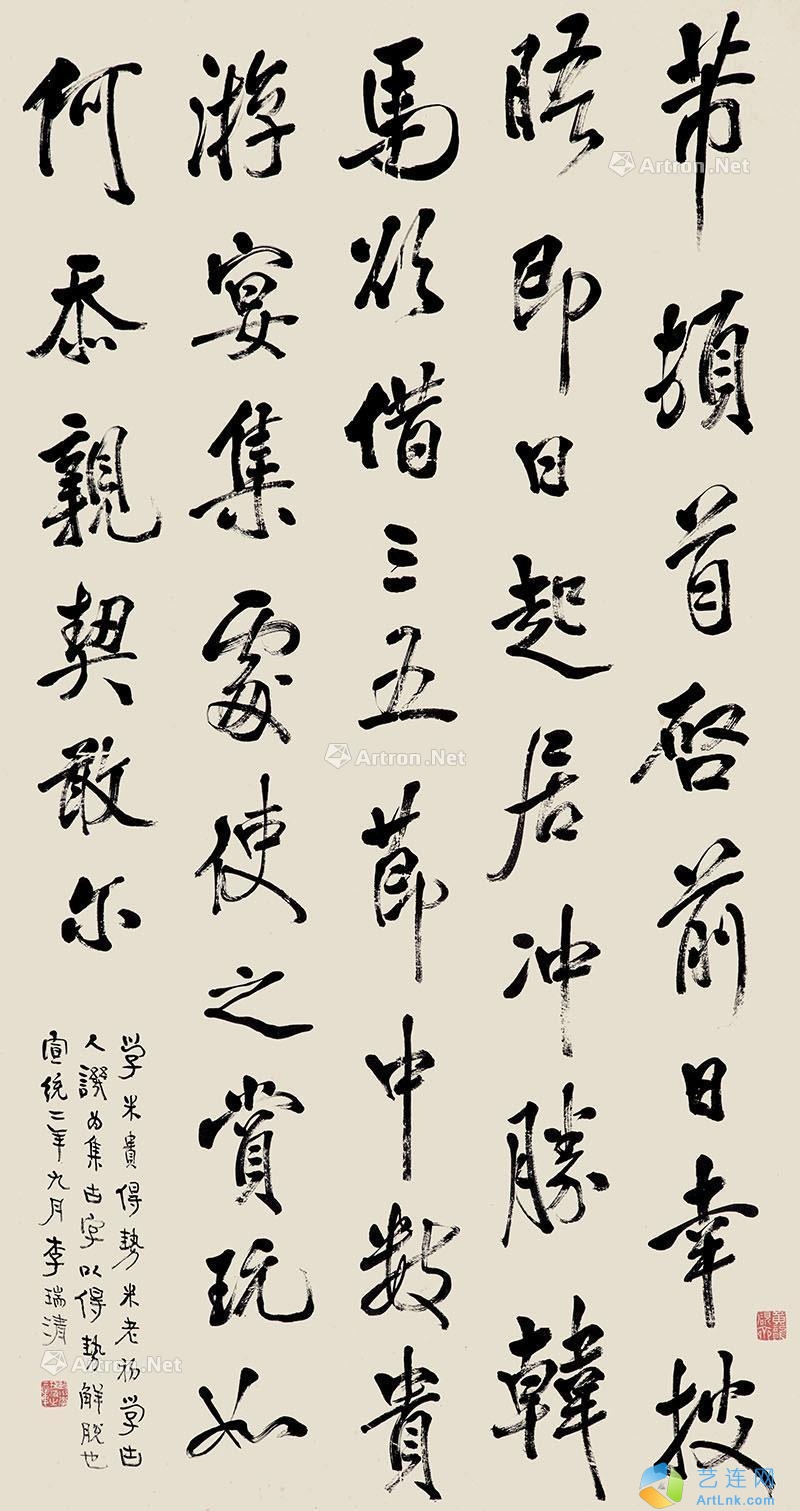 芾頓首啓前日幸披
晤即日起居冲勝韓
馬欲借三五莭中數貴
游宴集處使之賞玩如
何忝親契敢尔
学米貴得勢米老初学古
人譏為集古字以得勢解脱也
宣統二年九月李瑞清
Artron.Net
Artron.Net
Artron.Net
Artron.Net
艺连网
ArtLnk.com